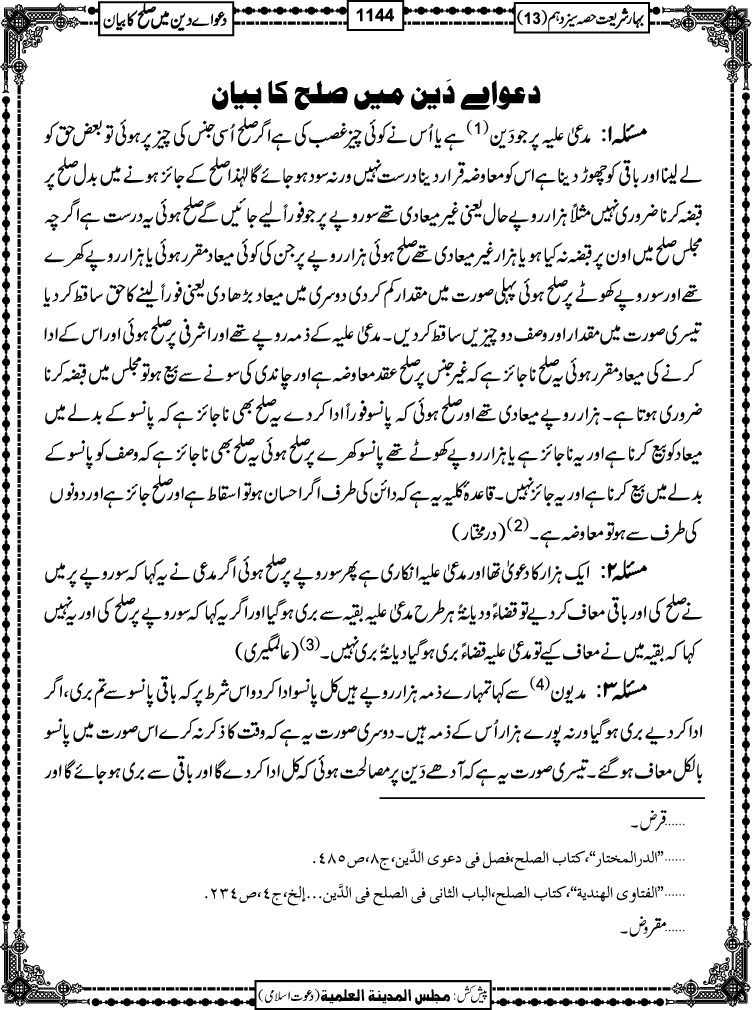 بہار شریعت حصہ سیزدہم (13)
1144
دعوائے دین میں صلح کا بیان
دعوائے دَین میں صلح کا بیان
مسئلہ ۱: مدعیٰ علیہ پر جو دَین(1) ہے یا اُس نے کوئی چیز غصب کی ہے اگر صلح اُسی جنس کی چیز پر ہوئی تو بعض حق کو
لے لینا اور باقی کو چھوڑ دینا ہے اس کو معاوضہ قرار دینا درست نہیں ورنہ سود ہو جائے گا لہٰذا صلح کے جائز ہونے میں بدل صلح پر
قبضہ کرنا ضروری نہیں مثلاً ہزار روپے حال یعنی غیر میعادی تھے سو روپے پر جو فوراً لیے جائیں گے صلح ہوئی یہ درست ہے اگر چہ
مجلس صلح میں اون پر قبضہ نہ کیا ہو یا ہزار غیر میعادی تھے صلح ہوئی ہزار روپے پر جن کی کوئی میعاد مقرر ہوئی یا ہزار روپے کھرے
تھے اور سو روپے کھوٹے پر صلح ہوئی پہلی صورت میں مقدار کم کر دی دوسری میں میعاد بڑھا دی یعنی فوراً لینے کا حق ساقط کر دیا
تیسری صورت میں مقدار اور وصف دو چیزیں ساقط کر دیں۔ مدعیٰ علیہ کے ذمہ روپے تھے اور اشرفی پر صلح ہوئی اور اس کے ادا
کرنے کی میعاد مقرر ہوئی یہ صلح نا جائز ہے کہ غیر جنس پر صلح عقد معاوضہ ہے اور چاندی کی سونے سے بیع ہو تو مجلس میں قبضہ کرنا
ضروری ہوتا ہے۔ ہزار روپے میعادی تھے اور صلح ہوئی کہ پانسو فوراً ادا کر دے یہ صلح بھی نا جائز ہے کہ پانسو کے بدلے میں
میعاد کو بیع کرنا ہے اور یہ نا جائز ہے یا ہزار روپے کھوٹے تھے پانسو کھرے پر صلح ہوئی یہ صلح بھی نا جائز ہے کہ وصف کو پانسو کے
بدلے میں بیع کرنا ہے اور یہ جائز نہیں۔ قاعدہ کلیہ یہ ہے کہ دائن کی طرف اگر احسان ہو تو اسقاط ہے اور صلح جائز ہے اور دونوں
کی طرف سے ہو تو معاوضہ ہے۔(2) (درمختار)
مسئلہ ۲: ایک ہزار کا دعویٰ تھا اور مدعیٰ علیہ انکاری ہے پھر سو روپے پر صلح ہوئی اگر مدعی نے یہ کہا کہ سو روپے پر میں
نے صلح کی اور باقی معاف کر دیے تو قضاءً و دیانۃً ہر طرح مدعیٰ علیہ بقیہ سے بری ہو گیا اور اگر یہ کہا کہ سو روپے پر صلح کی اور یہ نہیں
کہا کہ بقیہ میں نے معاف کیے تو مدعیٰ علیہ قضاءً بری ہو گیا دیانۃً بری نہیں۔(3) (عالمگیری)
مسئلہ ۳: مدیون(4) سے کہا تمہارے ذمہ ہزار روپے ہیں کل پانسو ادا کر دو اس شرط پر کہ باقی پانسو سے تم بری، اگر
ادا کر دیے بری ہو گیا ورنہ پورے ہزار اُس کے ذمہ ہیں۔ دوسری صورت یہ ہے کہ وقت کا ذکر نہ کرے اس صورت میں پانسو
بالکل معاف ہو گئے۔ تیسری صورت یہ ہے کہ آدھے دَین پر مصالحت ہوئی کہ کل ادا کر دے گا اور باقی سے بری ہو جائے گا اور
......قرض۔
......"الدرالمختار"، کتاب الصلح، فصل فی دعوی الدَّین، ج۸، ص٤٨٥.
......"الفتاوی الهندية"، کتاب الصلح، الباب الثانی فی الصلح فی الدَّین...إلخ، ج٤، ص٢٣٤.
......مقروض۔
پیش کش: مجلس المدينة العلمية (دعوت اسلامی)